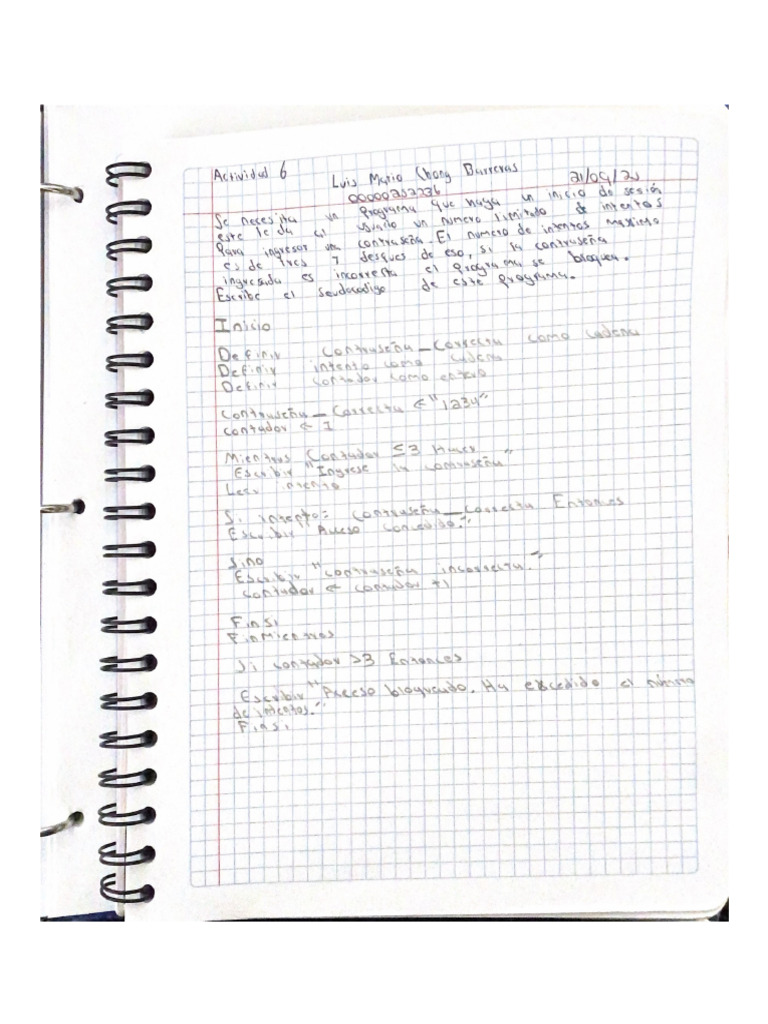 Actividad 6 Luis Mario Chong Barreras 21/09/20
00000252236
Se necesita un programa que haga un inicio de sesión
este le da al usuario un numero limitado de intentos
Para ingresar una contraseña. El numero de intentos maximo
es de tres y desques de eso, si la contraseña
ingresada es incorrecta el programa se bloquea.
Escribe el seudocodigo de este programa.
Inicio
Definir contraseña_correcta como cadena
Definir intenso como cadena
Definir contador como entero
Contraseña_Correcta ← "1234"
contador ← 1
Mientras Contador ≤3 Hacer
Escribir "Ingrese la contraseña"
Leer intento
Si intento= contraseña_correcta Entonces
Escribir "Acceso concedido."
Sino
Escribir "contraseña incorrecta."
contador ← contador +1
FinSi
FinMientras
Si contador >3 Entonces
Escribir "Acceso bloqueado. Ha excedido el número
de intentos."
Finsi